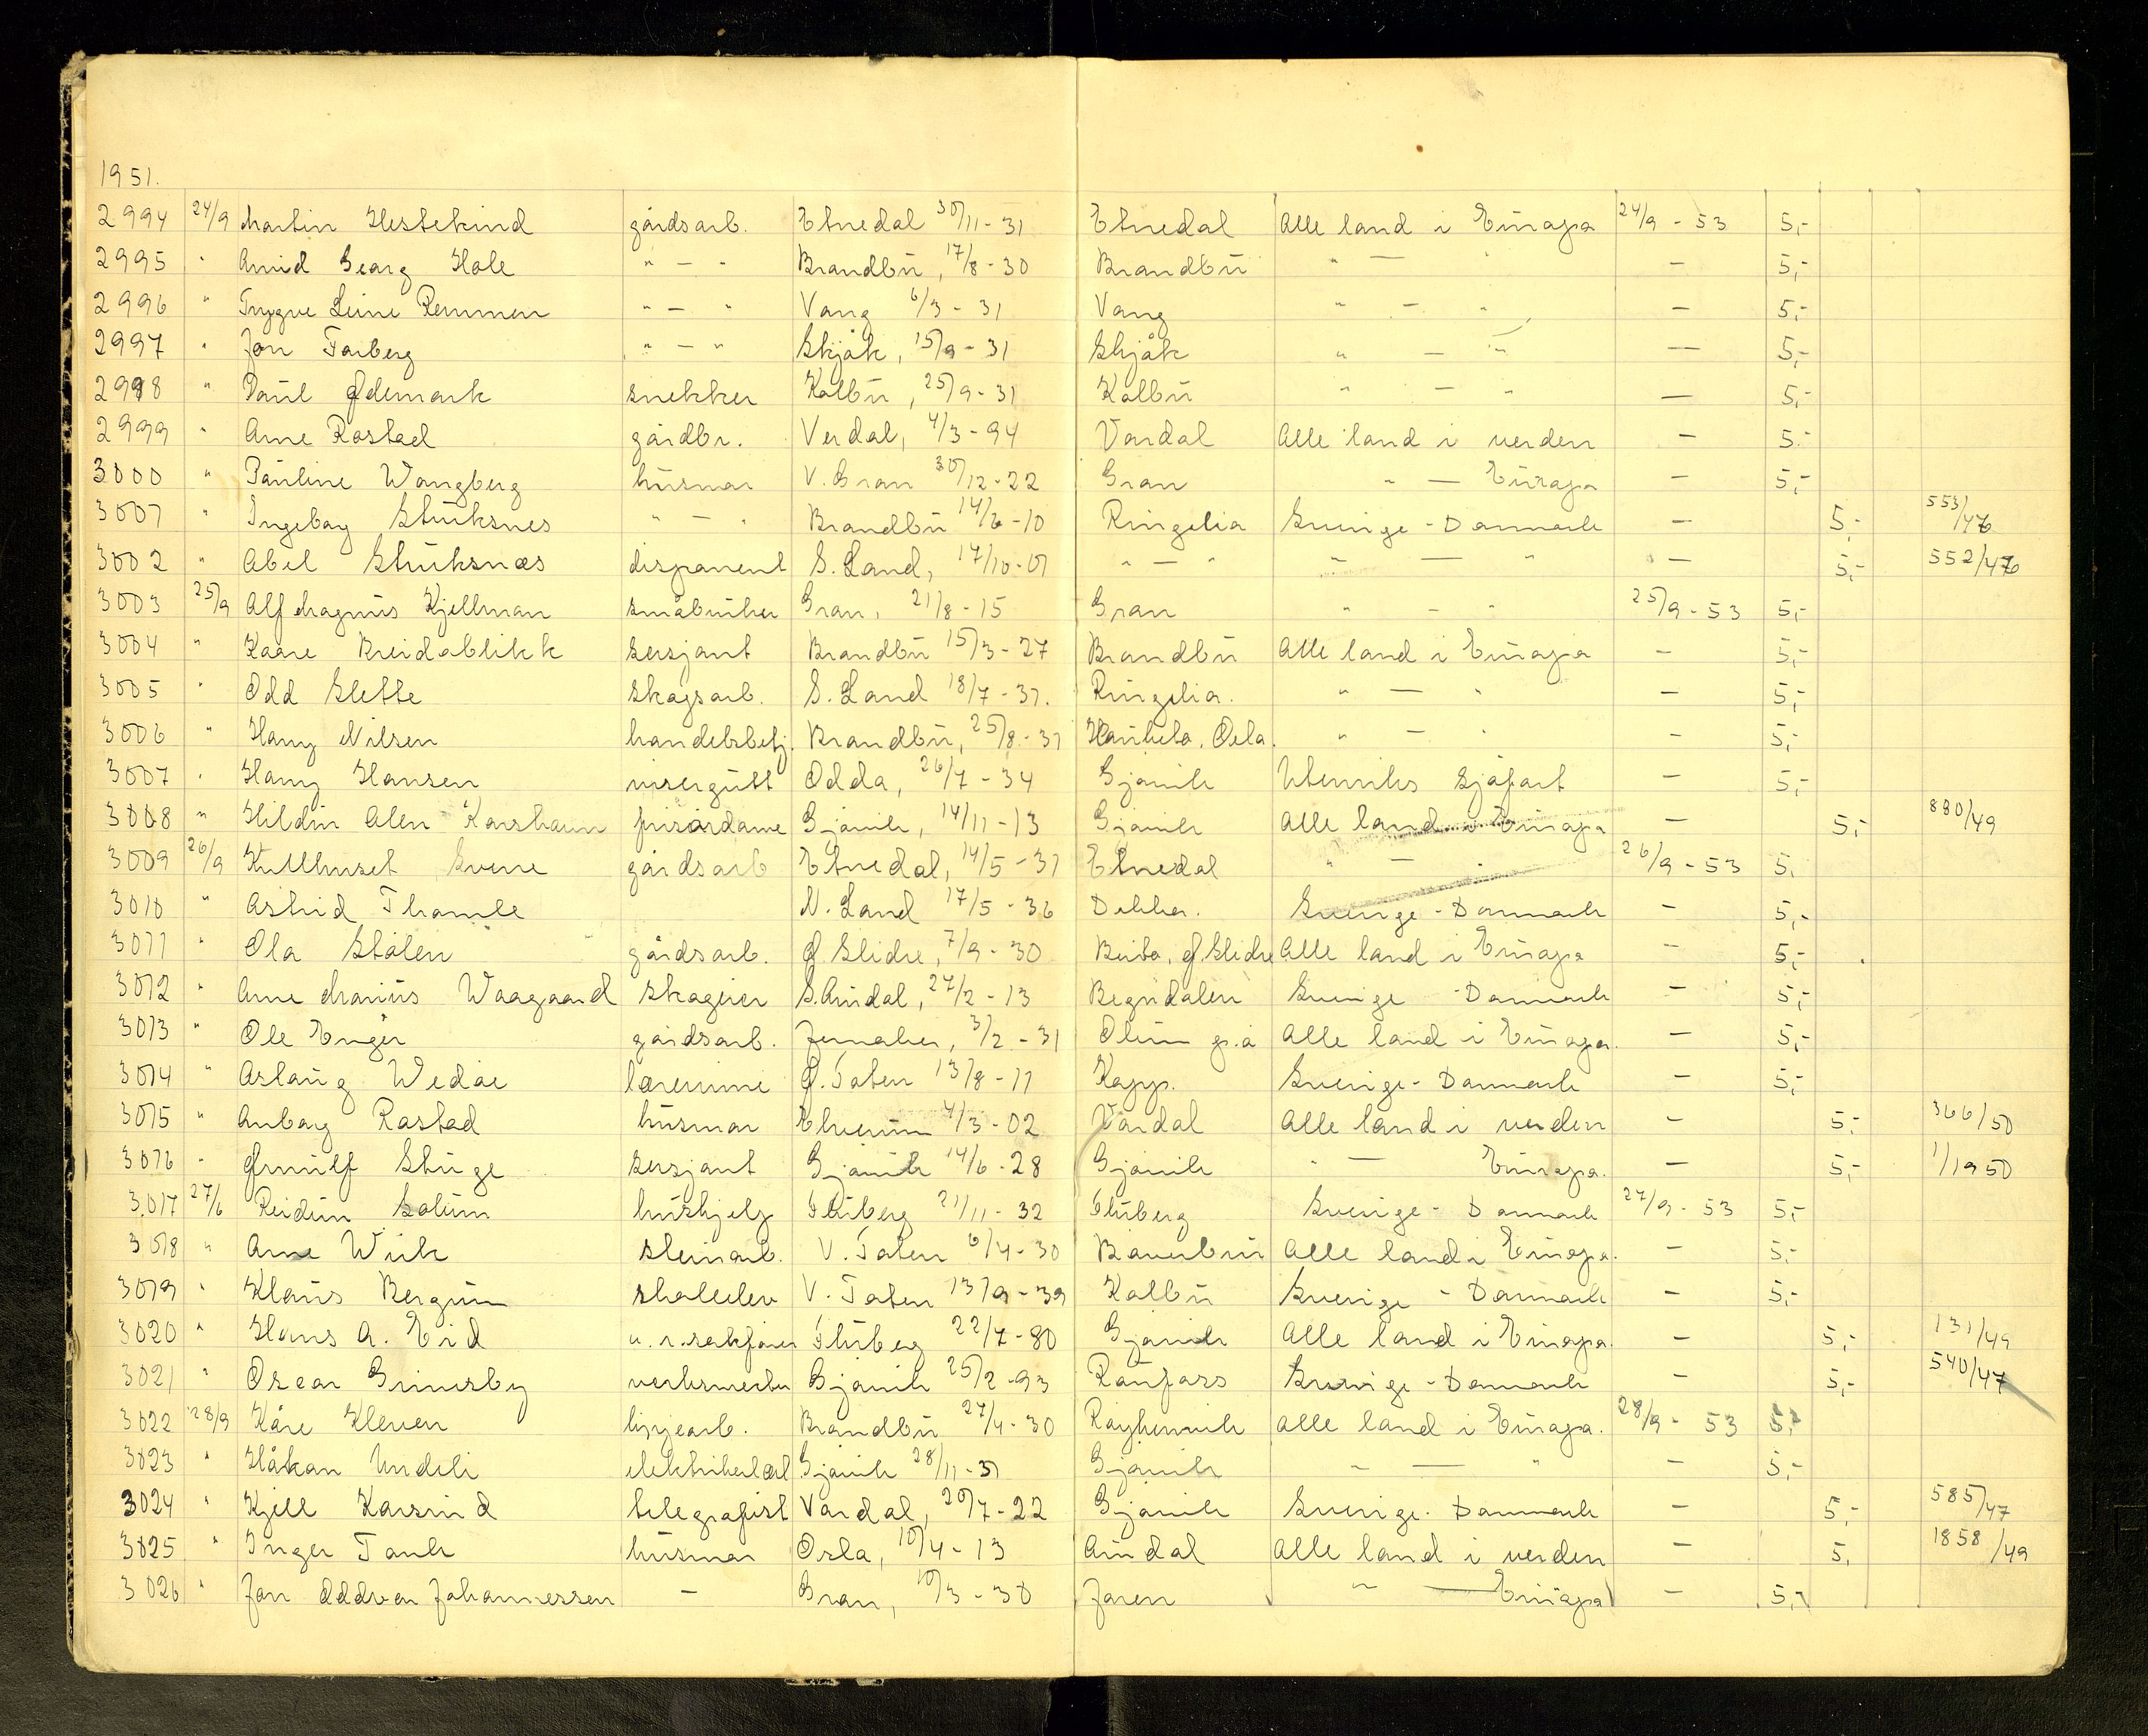 1951.
2994 24/9 Martin Hestekind gårdsarb. Etnedal 30/11-31 Etnedal Alle land i Europa 24/9-53 5,-
2995 " Arvid Georg Hole " - " Brandbu, 17/8-30 Brandbu " - " - 5,-
2996 " Trygve Leine Remmen " - " Vang 6/3-31 Vang " - " - 5,-
2997 " Jon Forberg " - " Skjåk, 15/9-31 Skjåk " - " - 5,-
2998 " Paul Ødemark snekker Kolbu, 25/9-31 Kolbu " - " - 5,-
2999 " Arne Rostad gårdbr. Verdal, 4/3-94 Vardal Alle land i verden - 5,-
3000 " Pauline Wangberg husmor V. Gran 30/12-22 Gran " - Europa - 5,-
3001 " Ingeborg Struksnes " - " Brandbu 14/6-10 Ringelia Sverige - Danmark - 5,- 553/46
3002 " Abel Struksnæs disponent S. Land, 17/10-01 " - " " - " - 5,- 552/46
3003 25/9 Alf Magnus Kjellman småbruker Gran, 21/8-15 Gran " - " 25/9-53 5,-
3004 " Kaare Breidablikk sersjant Brandbu 15/3-27 Brandbu Alle land i Europa - 5,-
3005 " Odd Slette skogsarb. S. Land 18/7-31. Ringelia. " - " - 5,-
3006 " Harry Nilsen handelsbetj. Brandbu, 25/8-31 Oslo. " - " - 5,-
3007 " Harry Hansen visergutt Odda, 26/7-34 Gjøvik Utenriks sjøfart - 5,-
3008 " Hildur Alen Korshavn frisørdame Gjøvik, 14/11-13 Gjøvik Alle land i Europa - 5,- 890/49
3009 26/9 Kullhuset Sverre gårdsarb Etnedal, 14/5-31 Etnedal " - " 26/9-53 5,
3010 " Astrid Thomle N. Land 17/5-36 Dokka. Sverige - Danmark - 5,-
3011 " Ola Stølen gårdsarb. Ø. Slidre, 7/9-30 Beito, Ø. Slidre Alle land i Europa - 5,-
3012 " Arne Marius Waagaard skogeier S. Aurdal, 27/2-13 Begndalen Sverige - Danmark - 5,-
3013 " Ole Enger gårdsarb. Jevnaker, 3/2-31 Olum p.å Alle land i Europa. - 5,-
3014 " Aslaug Wedøe lærerinne Ø. Toten 13/8-11 Kapp. Sverige - Danmark - 5,-
3015 " Anborg Rostad husmor Elverum 4/3-02 Vardal Alle land i verden - 5,- 366/50
3016 " Ørnulf Stuge sersjant Gjøvik 14/6-28 Gjøvik " - Europa. - 5,- 1/1950
3017 27/6 Reidun Solum hushjelp Fluberg 21/11-32 Fluberg Sverige - Danmark 27/9-53 5,-
3018 " Arne Wiik steinarb. V. Toten 6/4-30 Bøverbru Alle land i Europa. - 5,-
3019 " Klaus Bergum skoleelev V. Toten 13/9-39 Kolbu Sverige - Danmark - 5,-
3020 " Hans A. Eid o.r.sakfører Fluberg 22/7-80 Gjøvik Alle land i Europa. - 5,- 131/49
3021 " Oscar Grimsby verksmester Gjøvik 25/2-93 Raufoss Sverige - Danmark - 5,- 540/47
3022 28/9 Kåre Kleven linjearb. Brandbu 27/4-30 Røykenvik Alle land i Europa. 28/9-53 5,-
3023 " Håkon Undeli elektrikerlærl Gjøvik 28/11-31 Gjøvik " - " - 5,-
3024 " Kjell Korsrud telegrafist Vardal, 20/7-22 Gjøvik Sverige - Danmark - 5,- 585/47
3025 " Inger Tonk husmor Oslo, 10/4-13 Aurdal Alle land i verden - 5, 1858/49
3026 " Jon Oddvar Johannessen - Gran, 10/3-38 Jaren " - Europa - 5,-